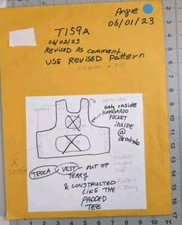 Angie
06/01/23
T159A
06/02/23
REVISED AS COMMENT
USE REVISED PATTERN
only inside
KANGAROO
POCKET
INSIDE
@
TESSLA VEST OUT OF
TERRY
& CONSTRUCTED
LIKE THE
PADDED
TEE